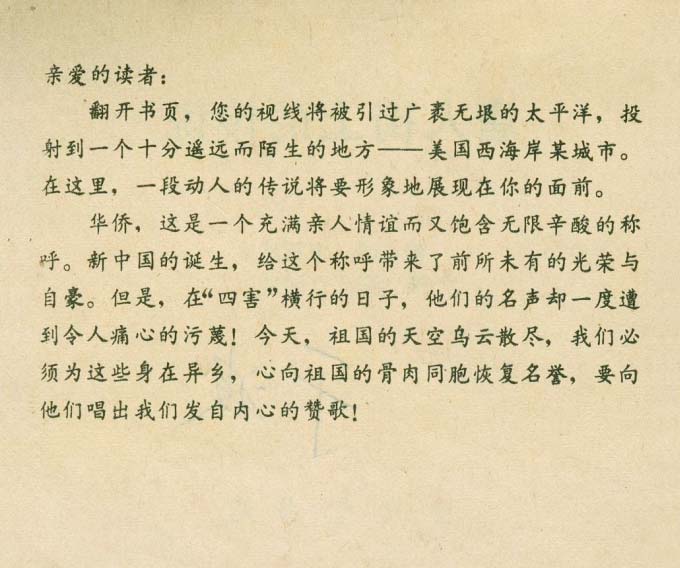 亲爱的读者：
翻开书页，您的视线将被引过广袤无垠的太平洋，投
射到一个十分遥远而陌生的地方——美国西海岸某城市。
在这里，一段动人的传说将要形象地展现在你的面前。
华侨，这是一个充满亲人情谊而又饱含无限辛酸的称
呼。新中国的诞生，给这个称呼带来了前所未有的光荣与
自豪。但是，在“四害”横行的日子，他们的名声却一度遭
到令人痛心的污蔑！今天，祖国的天空乌云散尽，我们必
须为这些身在异乡，心向祖国的骨肉同胞恢复名誉，要向
他们唱出我们发自内心的赞歌！